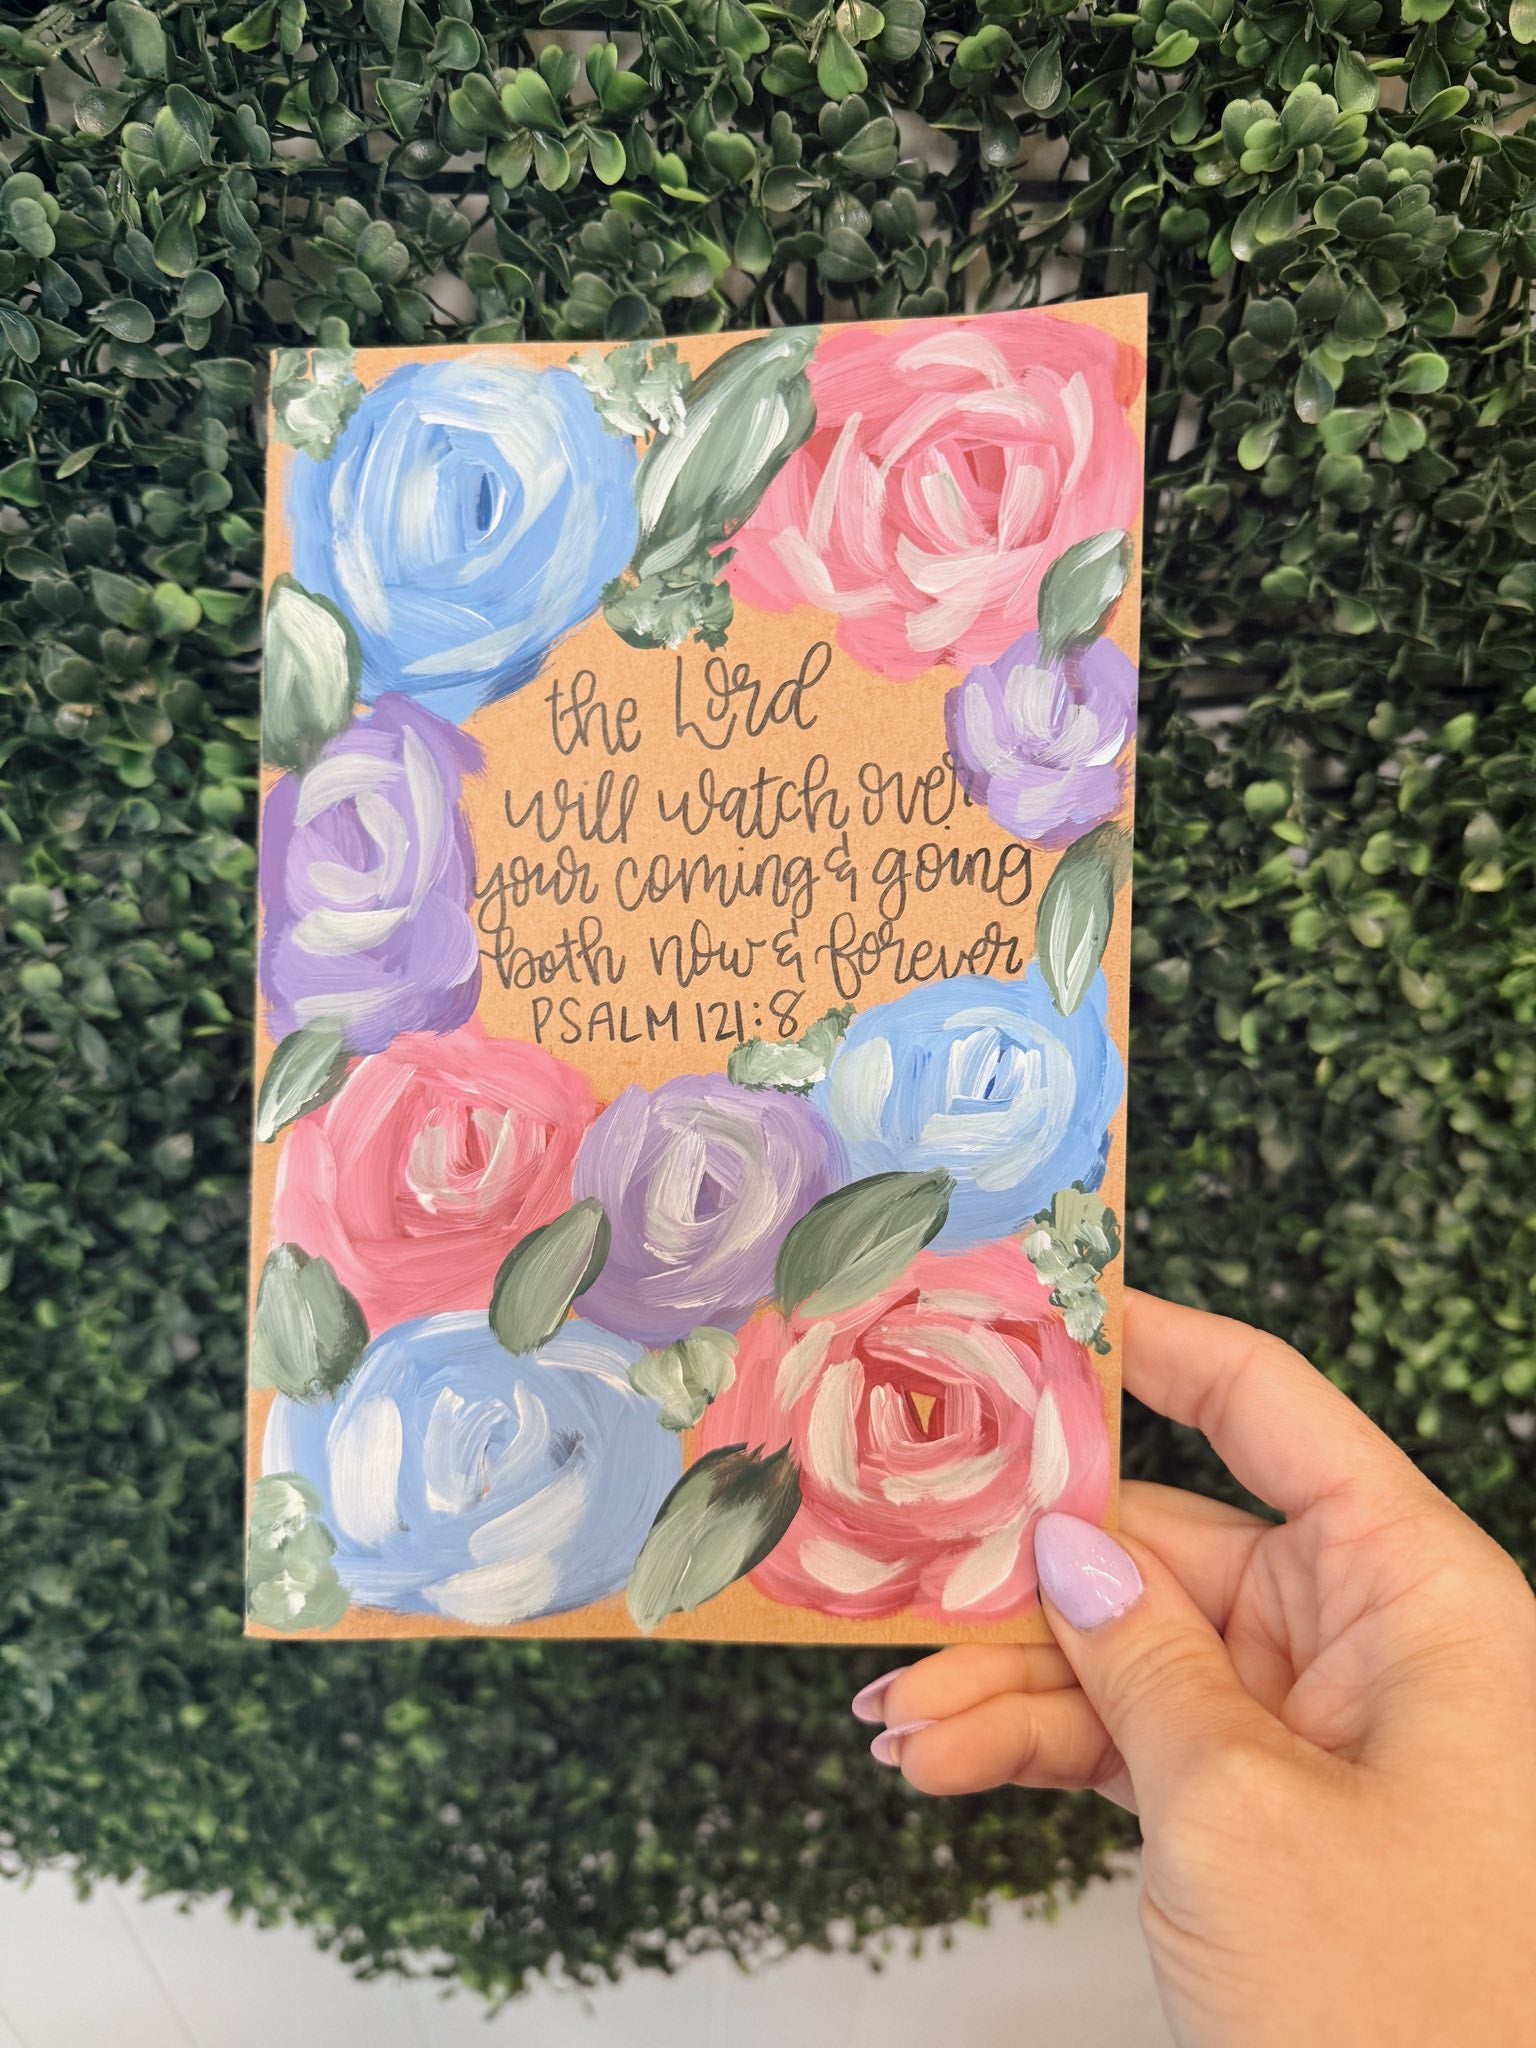 the Lord
will watch over
your coming & going
both now & forever
PSALM 121:8